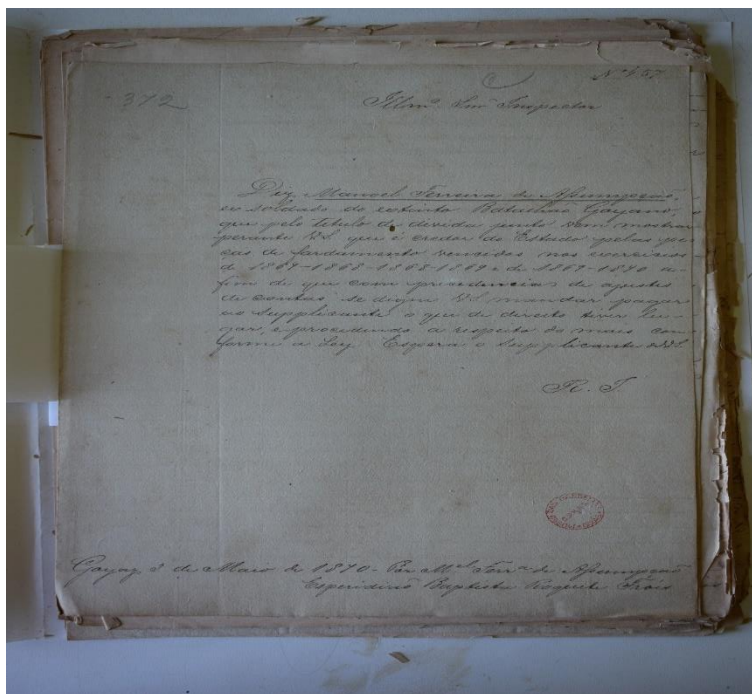 372
Illmo Snr Inspector
Diz Manoel Ferreira de Assumpção,
ex soldado do extinto Batalhão Goyano,
que pelo titulo de divida junto vem mostrar
perante VS. que é credor do Estado pelas pe-
ças de fardamento vencidas nos exercicios
de 1867-1868-1868-1869 e de 1869-1870 a-
fim de que com precedencias de ajustes
de contas, se digne VS. mandar pagar
ao Supplicante o que de direito tiver lu-
gar, e procedendo a respeito do mais con-
forme a Ley. Espera o Supplicante de VS.
R. J.
Goyaz 3 de Maio de 1870 - Por Mel Ferra de Assumpção
Esperidião Baptista Roquete Frois